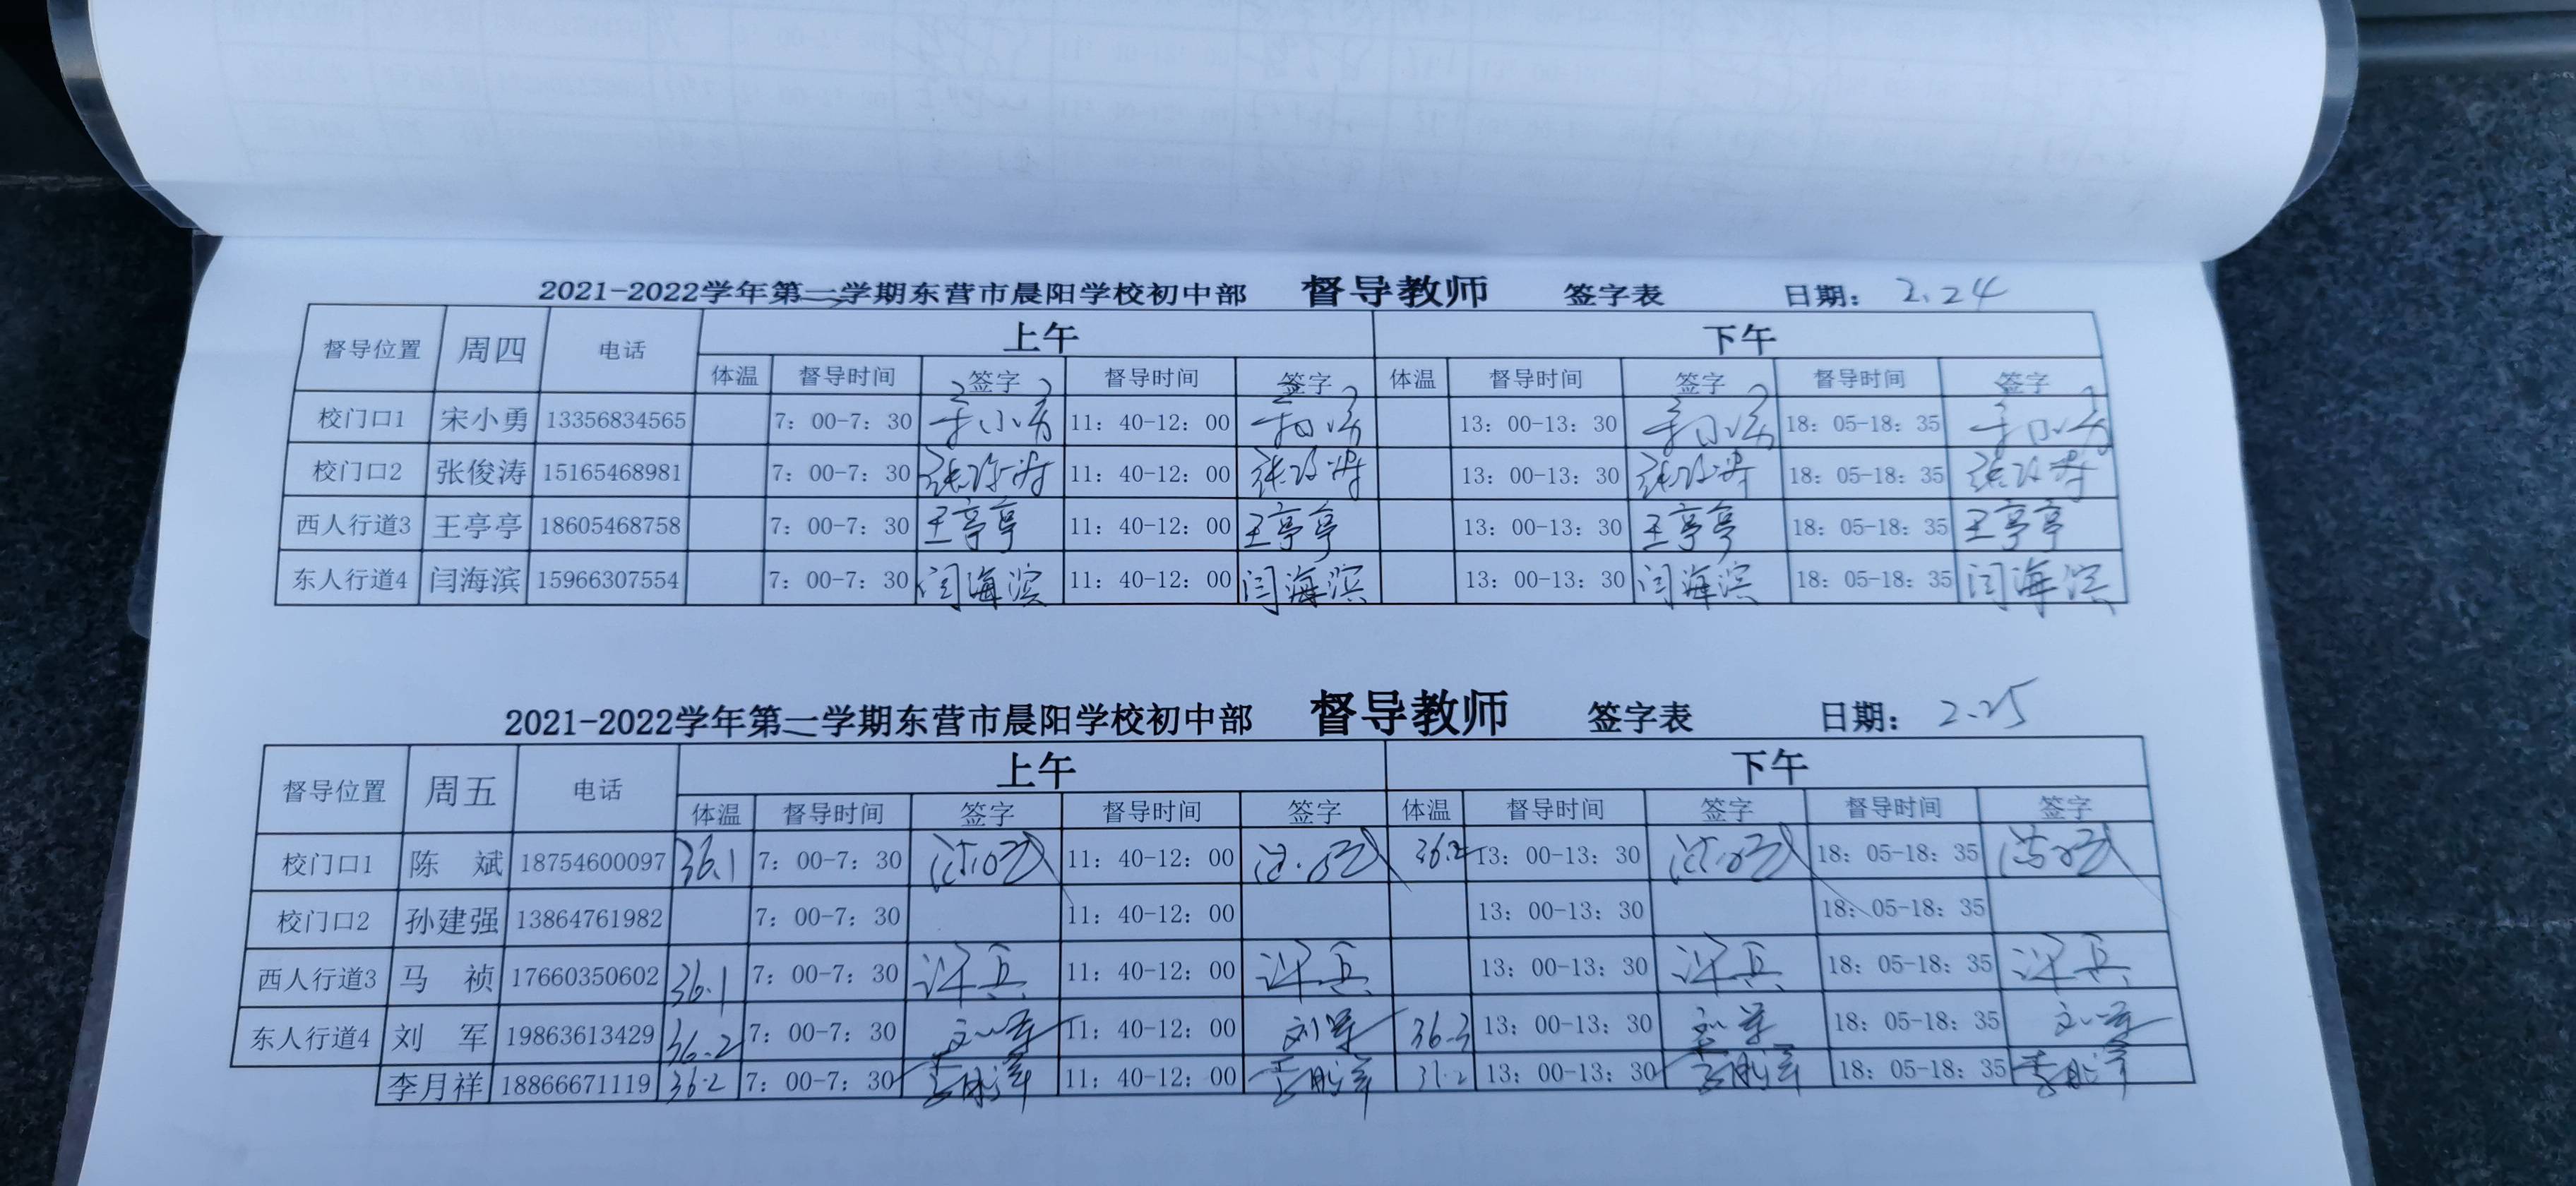 2021-2022学年第二学期东营市晨阳学校初中部 督导教师 签字表 日期： 2.24
督导位置 周四 电话 上午 下午
体温 督导时间 签字 督导时间 签字 体温 督导时间 签字 督导时间 签字
校门口1 宋小勇 13356834565 7：00-7：30 宋小勇 11：40-12：00 宋小勇 13：00-13：30 宋小勇 18：05-18：35 宋小勇
校门口2 张俊涛 15165468981 7：00-7：30 张俊涛 11：40-12：00 张俊涛 13：00-13：30 张俊涛 18：05-18：35 张俊涛
西人行道3 王亭亭 18605468758 7：00-7：30 王亭亭 11：40-12：00 王亭亭 13：00-13：30 王亭亭 18：05-18：35 王亭亭
东人行道4 闫海滨 15966307554 7：00-7：30 闫海滨 11：40-12：00 闫海滨 13：00-13：30 闫海滨 18：05-18：35 闫海滨
2021-2022学年第二学期东营市晨阳学校初中部 督导教师 签字表 日期： 2.25
督导位置 周五 电话 上午 下午
体温 督导时间 签字 督导时间 签字 体温 督导时间 签字 督导时间 签字
校门口1 陈 斌 18754600097 36.1 7：00-7：30 11：40-12：00 36.2 13：00-13：30 18：05-18：35
校门口2 孙建强 13864761982 7：00-7：30 11：40-12：00 13：00-13：30 18：05-18：35
西人行道3 马 祯 17660350602 36.1 7：00-7：30 许兵 11：40-12：00 许兵 13：00-13：30 许兵 18：05-18：35 许兵
东人行道4 刘 军 19863613429 36.2 7：00-7：30 刘军 11：40-12：00 刘军 36.3 13：00-13：30 刘军 18：05-18：35 刘军
李月祥 18866671119 36.2 7：00-7：30 李月祥 11：40-12：00 李月祥 31.2 13：00-13：30 李月祥 18：05-18：35 李月祥